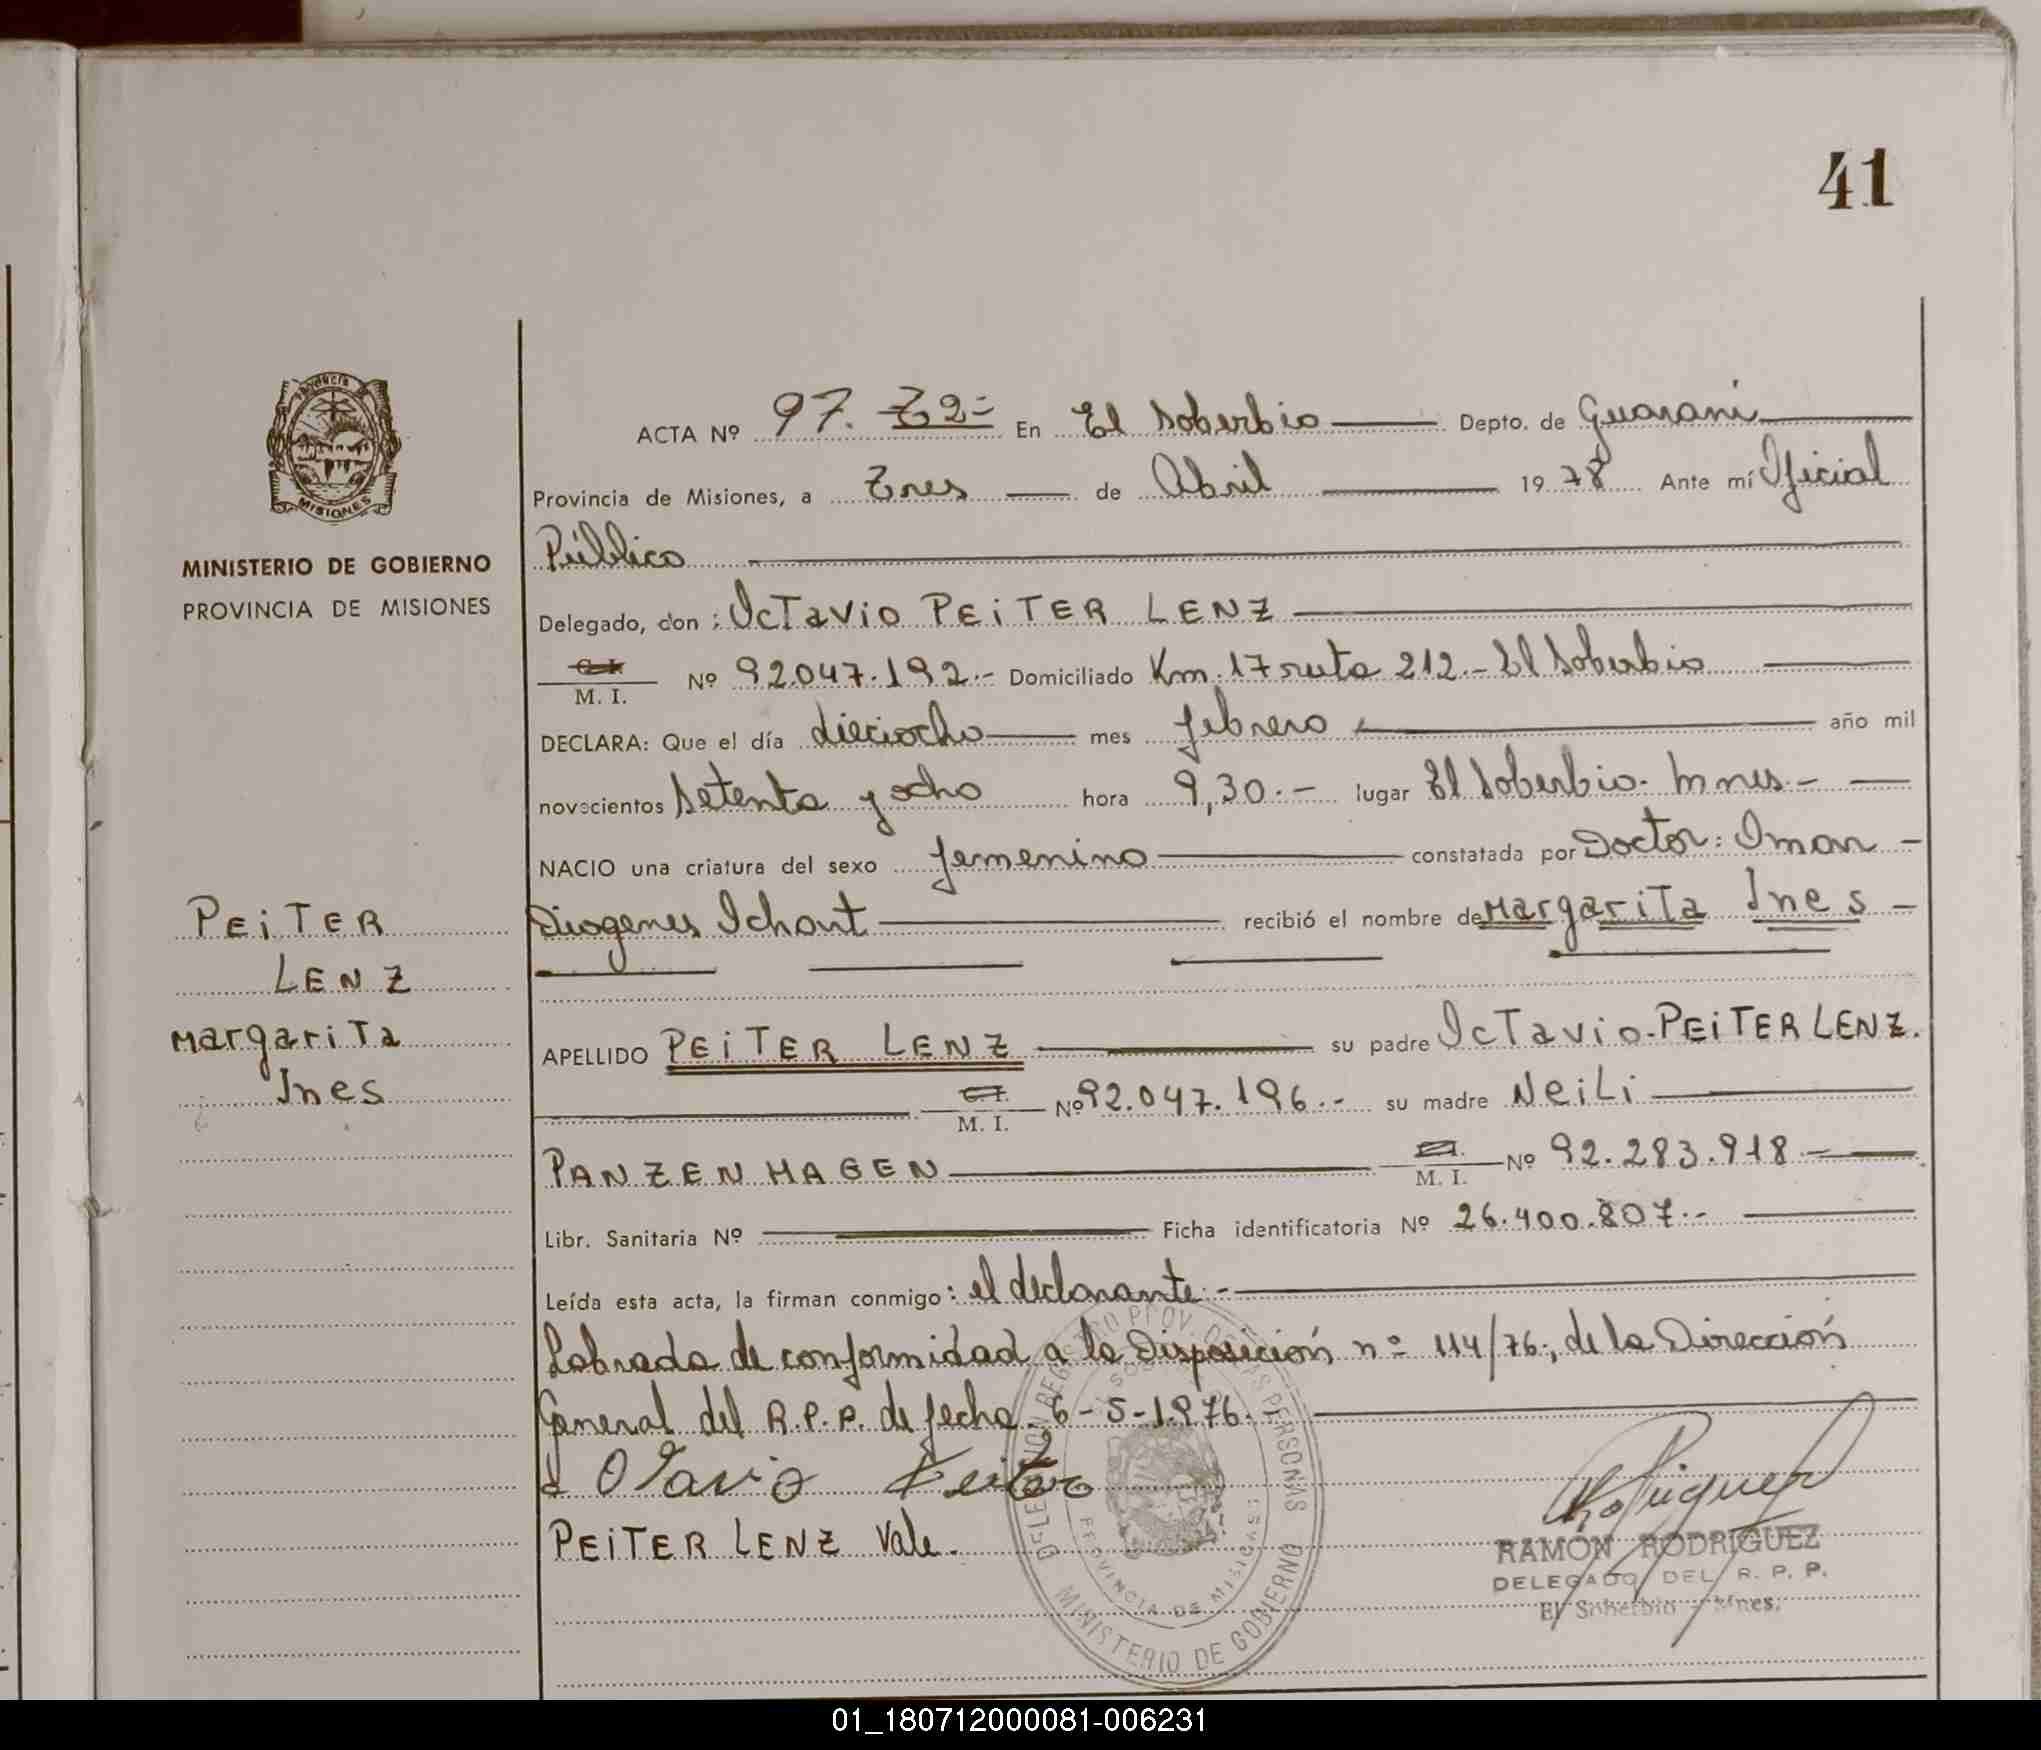 41
ACTA Nº 97. T2- En El Soberbio Depto. de Guarani
Provincia de Misiones, a Tres de Abril 1978 Ante mí Oficial
Público
MINISTERIO DE GOBIERNO
PROVINCIA DE MISIONES
Delegado, don : Octavio PEiTER LENZ
C. I. M. I. Nº 92.047.192.- Domiciliado Km. 17 ruta 212.- El Soberbio
DECLARA: Que el día dieciocho mes febrero año mil
novecientos setenta y ocho hora 9,30.- lugar El Soberbio. Mnes.-
NACIO una criatura del sexo femenino constatada por Doctor: Oman
Diogenes Ichont recibió el nombre de Margarita Ines
PEiTER
LENZ
Margarita
Ines
APELLIDO PEiTER LENZ su padre Octavio PEiTER LENZ.
M. I. Nº 92.047.196.- su madre NeiLi
PANZENHAGEN M. I. Nº 92.283.918.-
Libr. Sanitaria Nº Ficha identificatoria Nº 26.400.807.-
Leída esta acta, la firman conmigo: el declarante.-
Labrada de conformidad a la Disposición nº 114/76, de la Dirección
General del R.P.P. de fecha 6-5-1.976.
Otavio Peiter
PEiTER LENZ Vale.
DELEGACION REGISTRO PROV. DE LAS PERSONAS
EL SOBERBIO
PROVINCIA DE MISIONES
MINISTERIO DE GOBIERNO
Rodriguez
RAMON RODRIGUEZ
DELEGADO DEL R. P. P.
El Soberbio - Mnes.
PROVINCIA
MISIONES
01_180712000081-006231